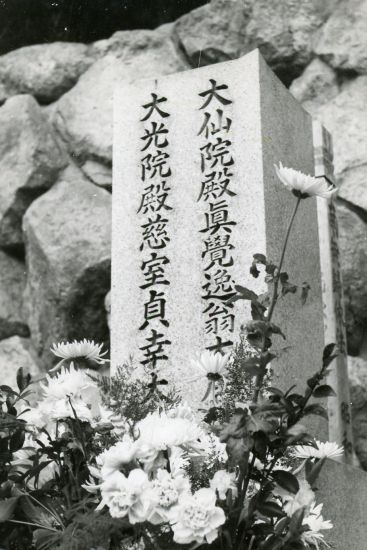 大仙院殿眞覺逸翁大
大光院殿慈室貞幸大